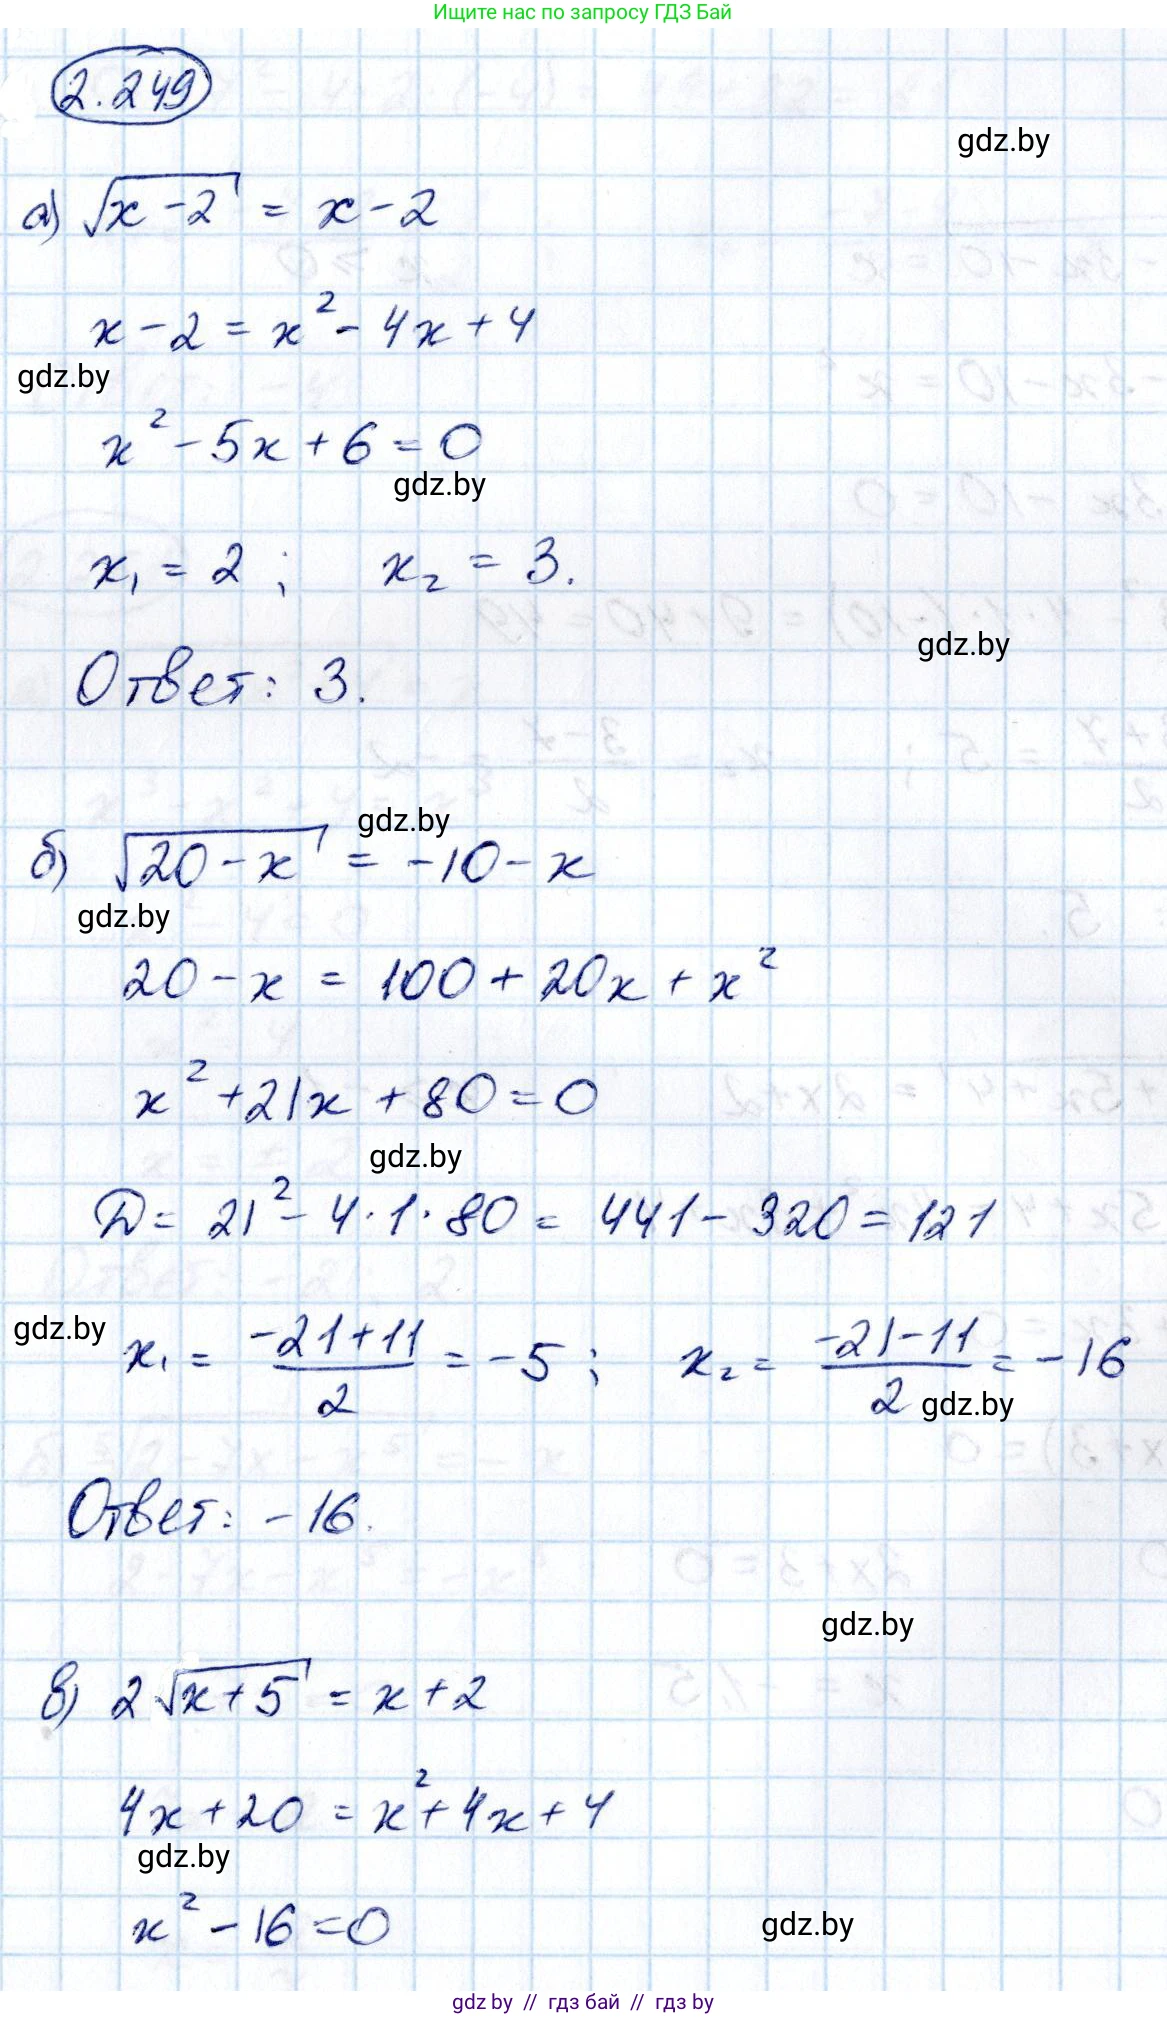 Ищите нас по запросу ГДЗ Бай
2.249
gdz.by
а) √(x-2) = x-2
x-2 = x²-4x+4
gdz.by
x²-5x+6=0
gdz.by
x₁ = 2 ; x₂ = 3.
gdz.by
Ответ: 3.
gdz.by
б) √(20-x) = -10-x
gdz.by
20-x = 100+20x+x²
x²+21x+80=0
gdz.by
D= 21²-4·1·80= 441-320=121
gdz.by
x₁ = (-21+11)/2 = -5 ; x₂ = (-21-11)/2 = -16
gdz.by
Ответ: -16.
gdz.by
в) 2√(x+5) = x+2
4x+20 = x²+4x+4
gdz.by
x²-16=0
gdz.by
gdz by // гдз бай // гдз by